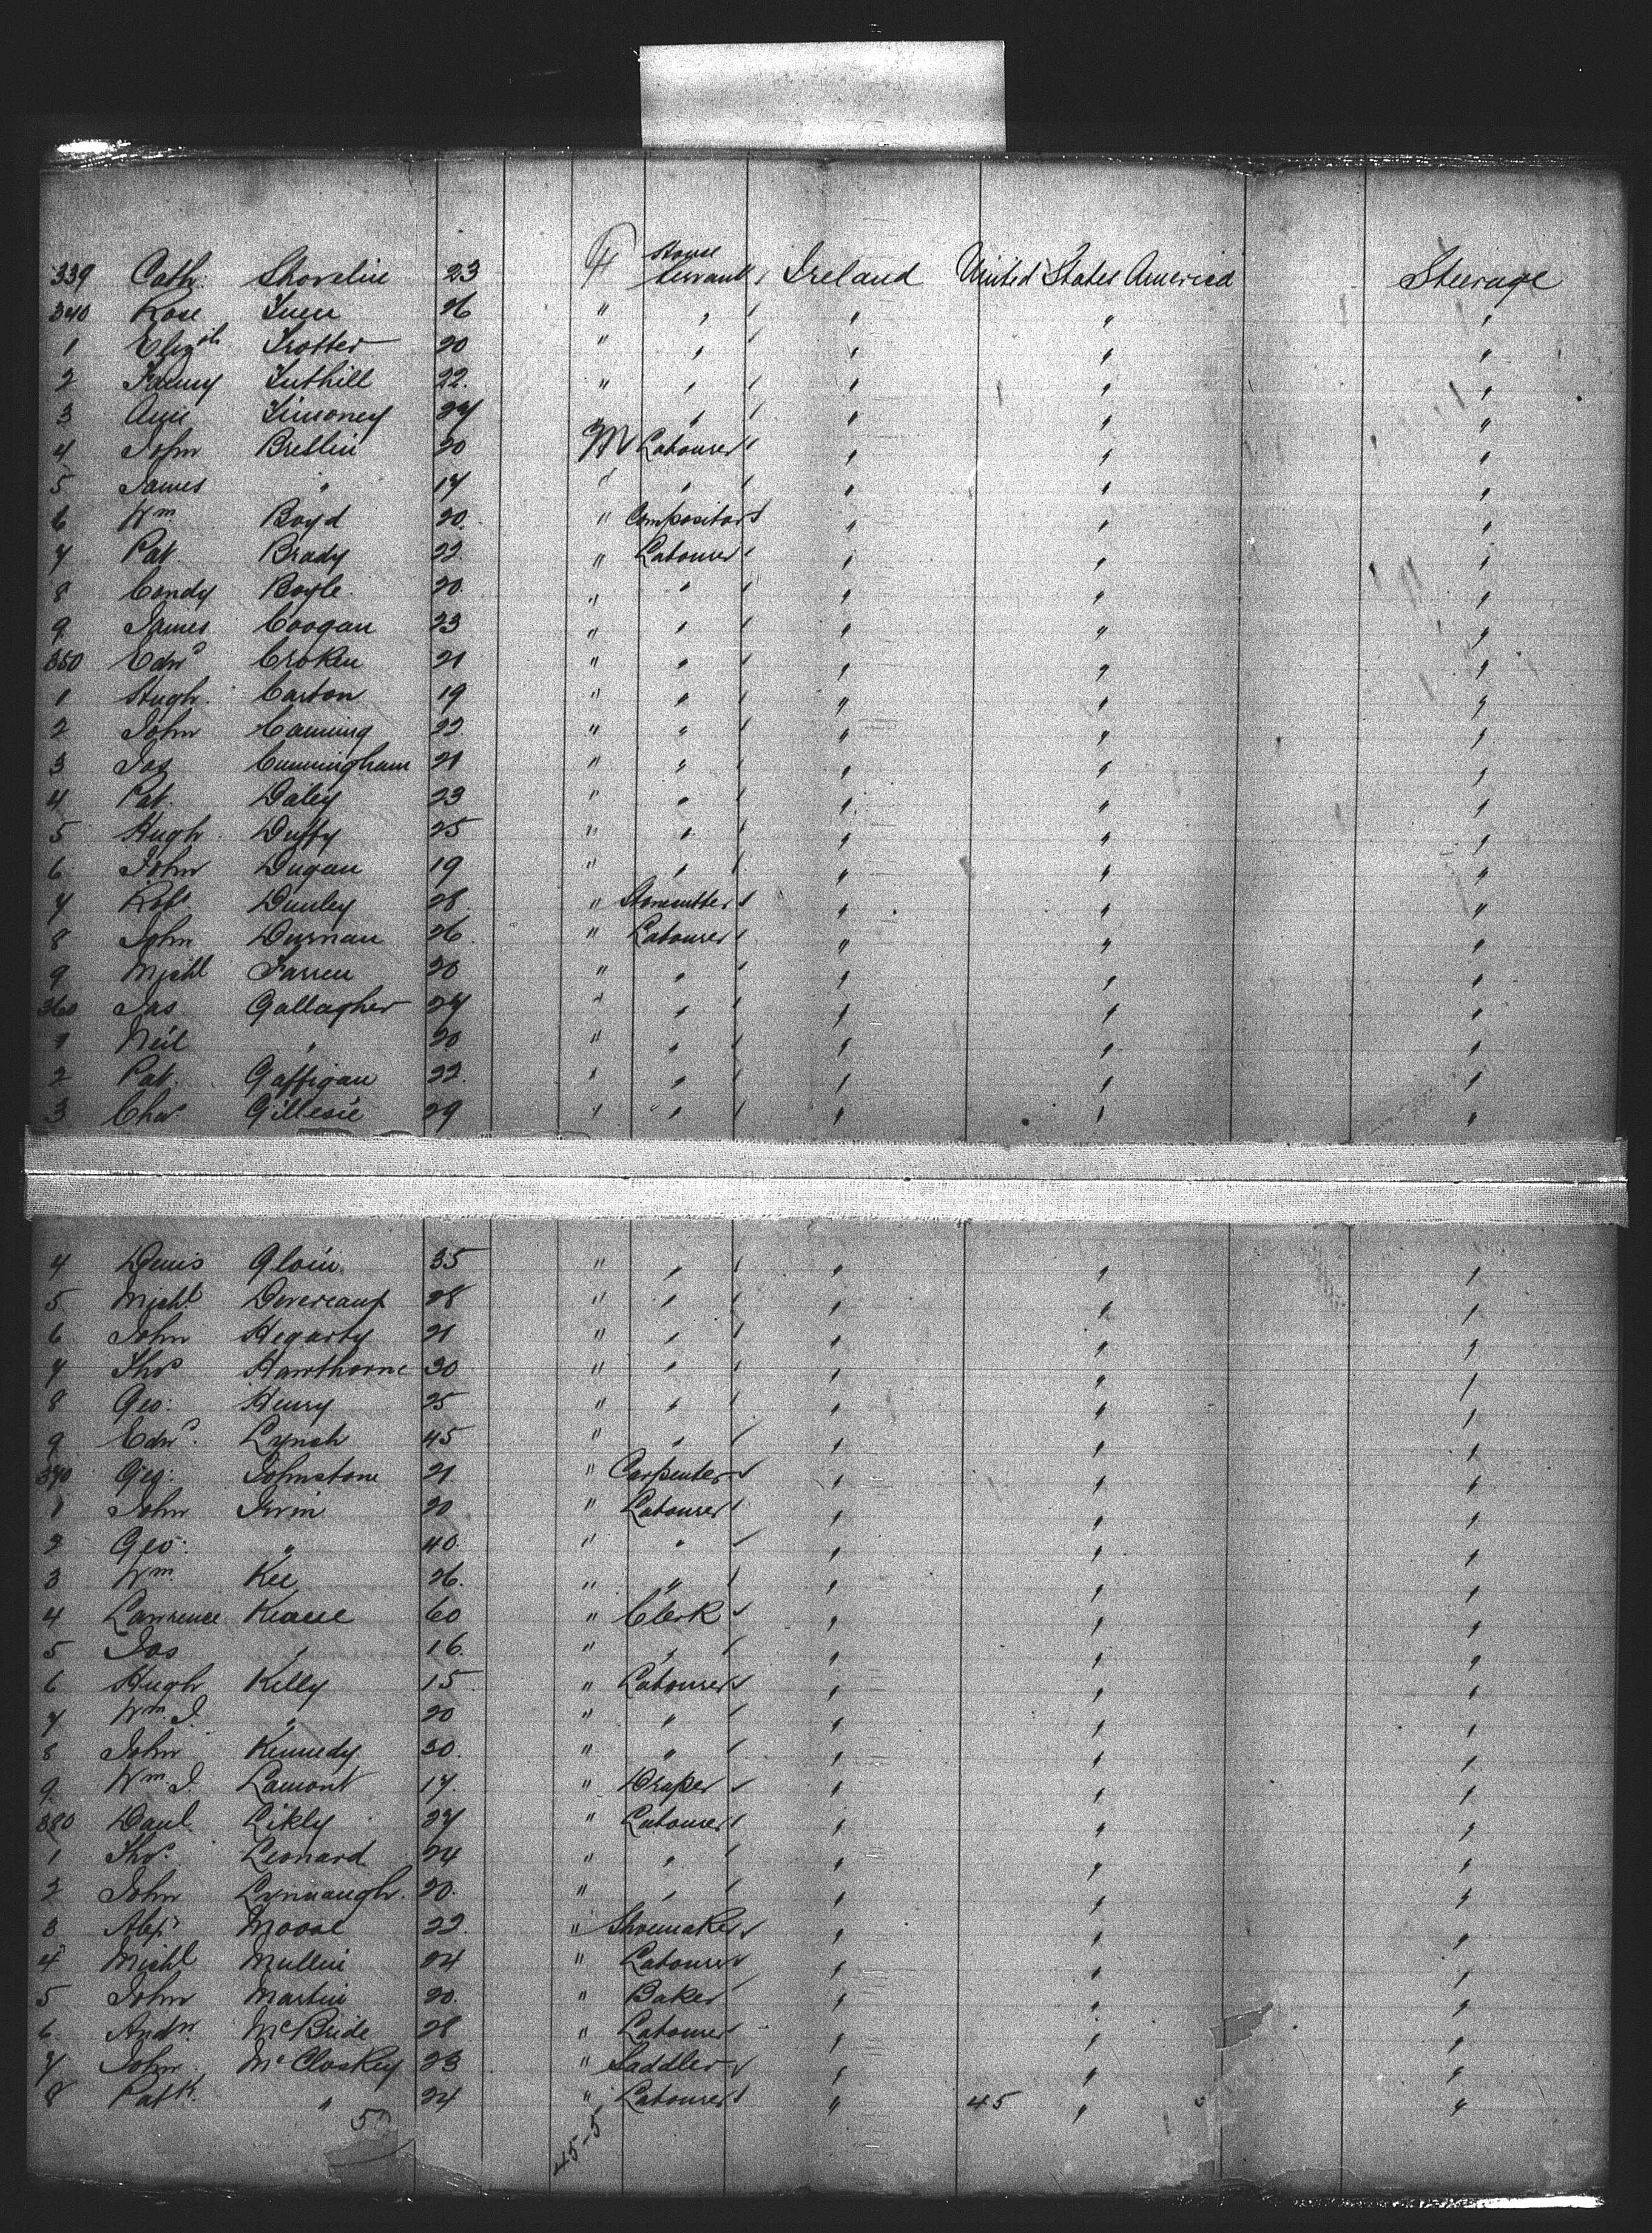 339 Cath: Shovelin 23 F House Servant Ireland United States America Steerage
340 Rose Tuen 26 " " " " "
1 Elizth Trotter 20 " " " " "
2 Fanny Tuthill 22 " " " " "
3 Ann Timoney 27 " " " "
4 John Breslin 20 M Labourer " " "
5 James " 17 " " " " "
6 Wm Boyd 20 " Compositor " " "
7 Pat Brady 22 " Labourer " " "
8 Condy Boyle 20 " " " " "
9 James Coogan 23 " " " " "
350 Edwd Croken 21 " " " " "
1 Hugh Carton 19 " " " " "
2 John Canning 22 " " " " "
3 Jas Cunningham 21 " " " " "
4 Pat. Daley 23 " " " " "
5 Hugh Duffy 25 " " " " "
6 John Dugan 19 " " " " "
7 Robt Dunley 28 " Stonecutter " " "
8 John Durnan 26 " Labourer " " "
9 Michl Farren 20 " " " " "
360 Jas Gallagher 27 " " " " "
1 Neil " 20 " " " " "
2 Pat. Gaffigan 22 " " " " "
3 Chas Gillesie 29 " " " " "
4 Denis Gloin 35 " " " " "
5 Michl Devereaux 28 " " " " "
6 John Hegarty 21 " " " " "
7 Thos Hawthorne 30 " " " " "
8 Geo: Henry 25 " " " " "
9 Edwd. Lynch 45 " " " " "
370 Geo: Johnstone 21 " Carpenter " " "
1 John Irvin 20 " Labourer " " "
2 Geo: " 40 " " " " "
3 Wm Kee 26 " " " " "
4 Lawrence Keane 60 " Clerk " " "
5 Jas " 16 " " " " "
6 Hugh Kelly 15 " Labourer " " "
7 Wm J. " 20 " " " " "
8 John Kennedy 30 " " " " "
9 Wm J. Lamont 17 " Draper " " "
380 Danl Likly 27 " Labourer " " "
1 Thos: Leonard 24 " " " " "
2 John Lynnaugh 20 " " " " "
3 Alexr Moore 22 " Shoemaker " " "
4 Michl Mullin 24 " Labourer " " "
5 John Martin 20 " Baker " " "
6 Andw McBride 28 " Labourer " " "
7 John McCloskey 23 " Saddler " " "
8 Patk " 24 " Labourer " 45 " "
50 45-5